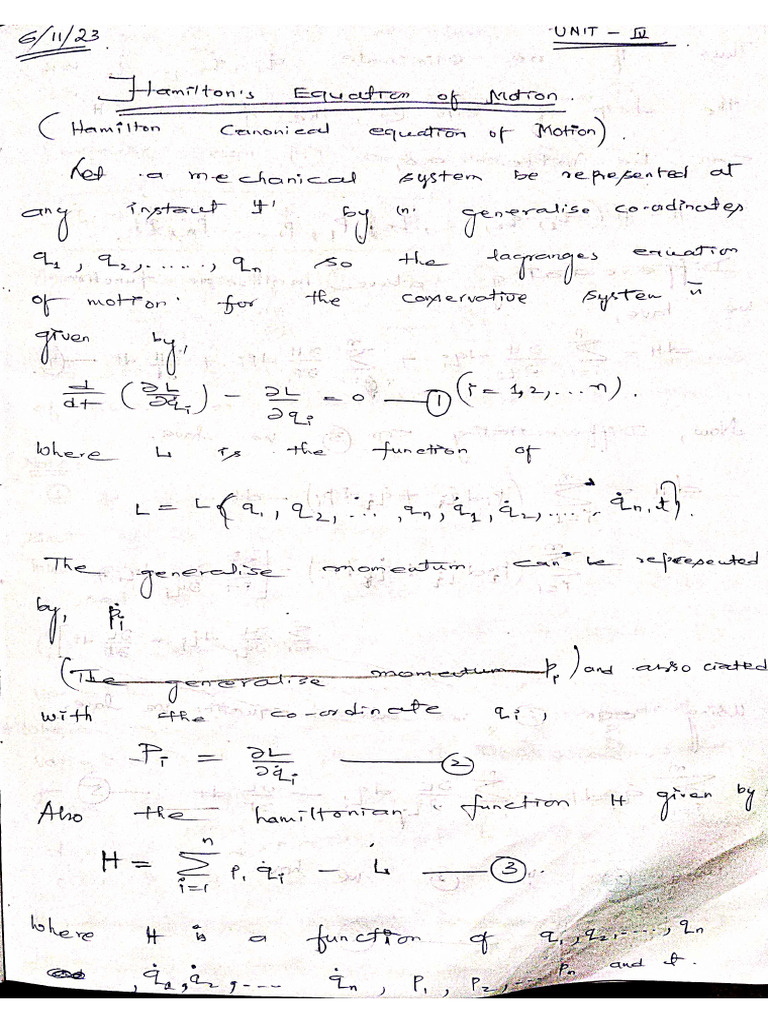 6/11/23. UNIT - IV
Hamilton's Equation of Motion.
(Hamilton Canonical equation of Motion).
Let a mechanical system be represented at
any instant 't' by 'n' generalise co-odinates
q1, q2, ....., qn so the lagranges equation
of motion for the conservative system is
given by,
d/dt (∂L/∂q̇i) - ∂L/∂qi = 0 —— ① (i = 1,2, ... n).
where L is the function of
L = L{q1, q2, ..., qn, q̇1, q̇2, ....., q̇n, t}.
The generalise momentum can be represented
by, pi
(The generalise momentum Pi) and associated
with the co-ordinate qi,
Pi = ∂L/∂q̇i —— ②
Also the hamiltonian function H given by
H = n∑i=1 Pi q̇i - L —— ③.
where H is a function of q1, q2, ...., qn
, q̇1, q̇2, .... q̇n, P1, P2, ... Pn and t.